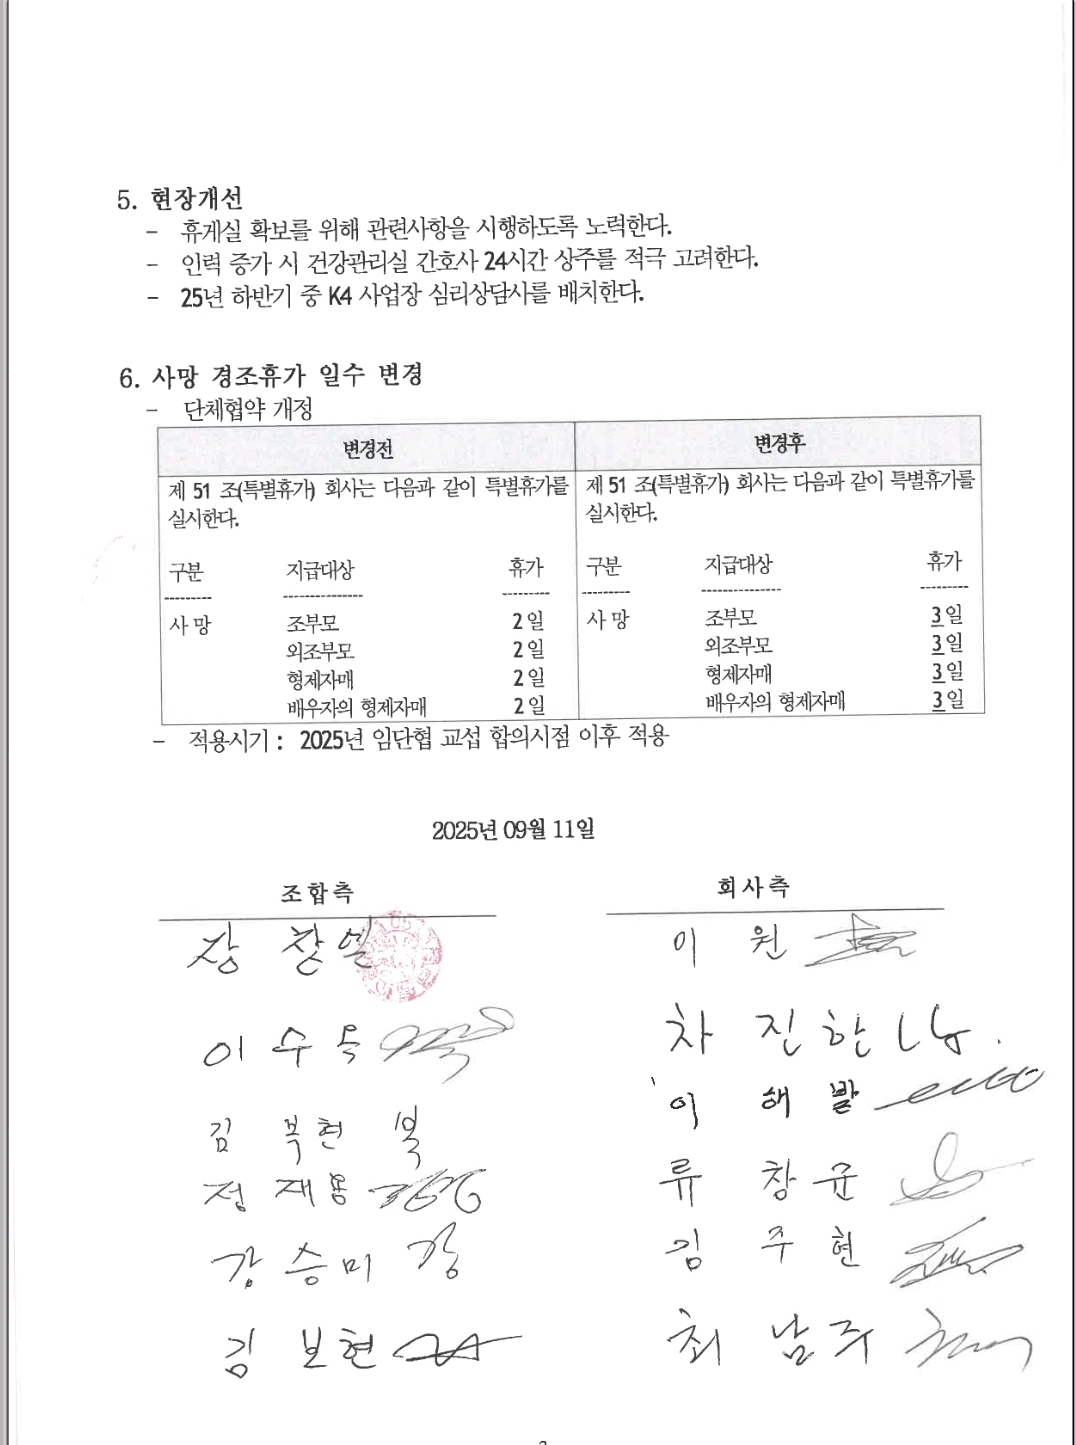 5. 현장개선
- 휴게실 확보를 위해 관련사항을 시행하도록 노력한다.
- 인력 증가 시 건강관리실 간호사 24시간 상주를 적극 고려한다.
- 25년 하반기 중 K4 사업장 심리상담사를 배치한다.
6. 사망 경조휴가 일수 변경
- 단체협약 개정
변경전 변경후
제 51 조(특별휴가) 회사는 다음과 같이 특별휴가를 제 51 조(특별휴가) 회사는 다음과 같이 특별휴가를
실시한다. 실시한다.
구분 지급대상 휴가 구분 지급대상 휴가
--------- --------------- --------- --------- --------------- ---------
사 망 조부모 2일 사 망 조부모 3일
외조부모 2일 외조부모 3일
형제자매 2일 형제자매 3일
배우자의 형제자매 2일 배우자의 형제자매 3일
- 적용시기 : 2025년 임단협 교섭 합의시점 이후 적용
2025년 09월 11일
조합측 회사측
이 원
이 수 차 진 한
김 복 현 이 해 발
정 재 용 류 창 균
강 승 미 강 김 주 현
김 보 현 최 남 주